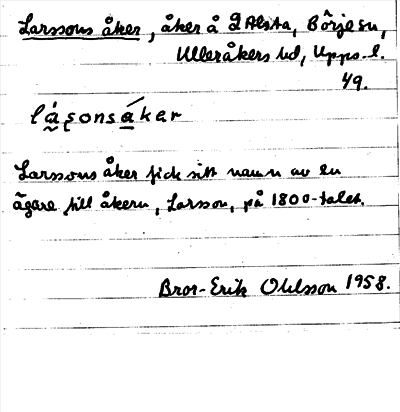 Larssons åker, åker å 2 Alsta, Börje sn,
Ulleråkers hd, Upps. l.
49.
lásonsåker
Larssons åker fick sitt namn av en
ägare till åkern, Larsson, på 1800-talet.
Bror-Erik Ohlsson 1958.